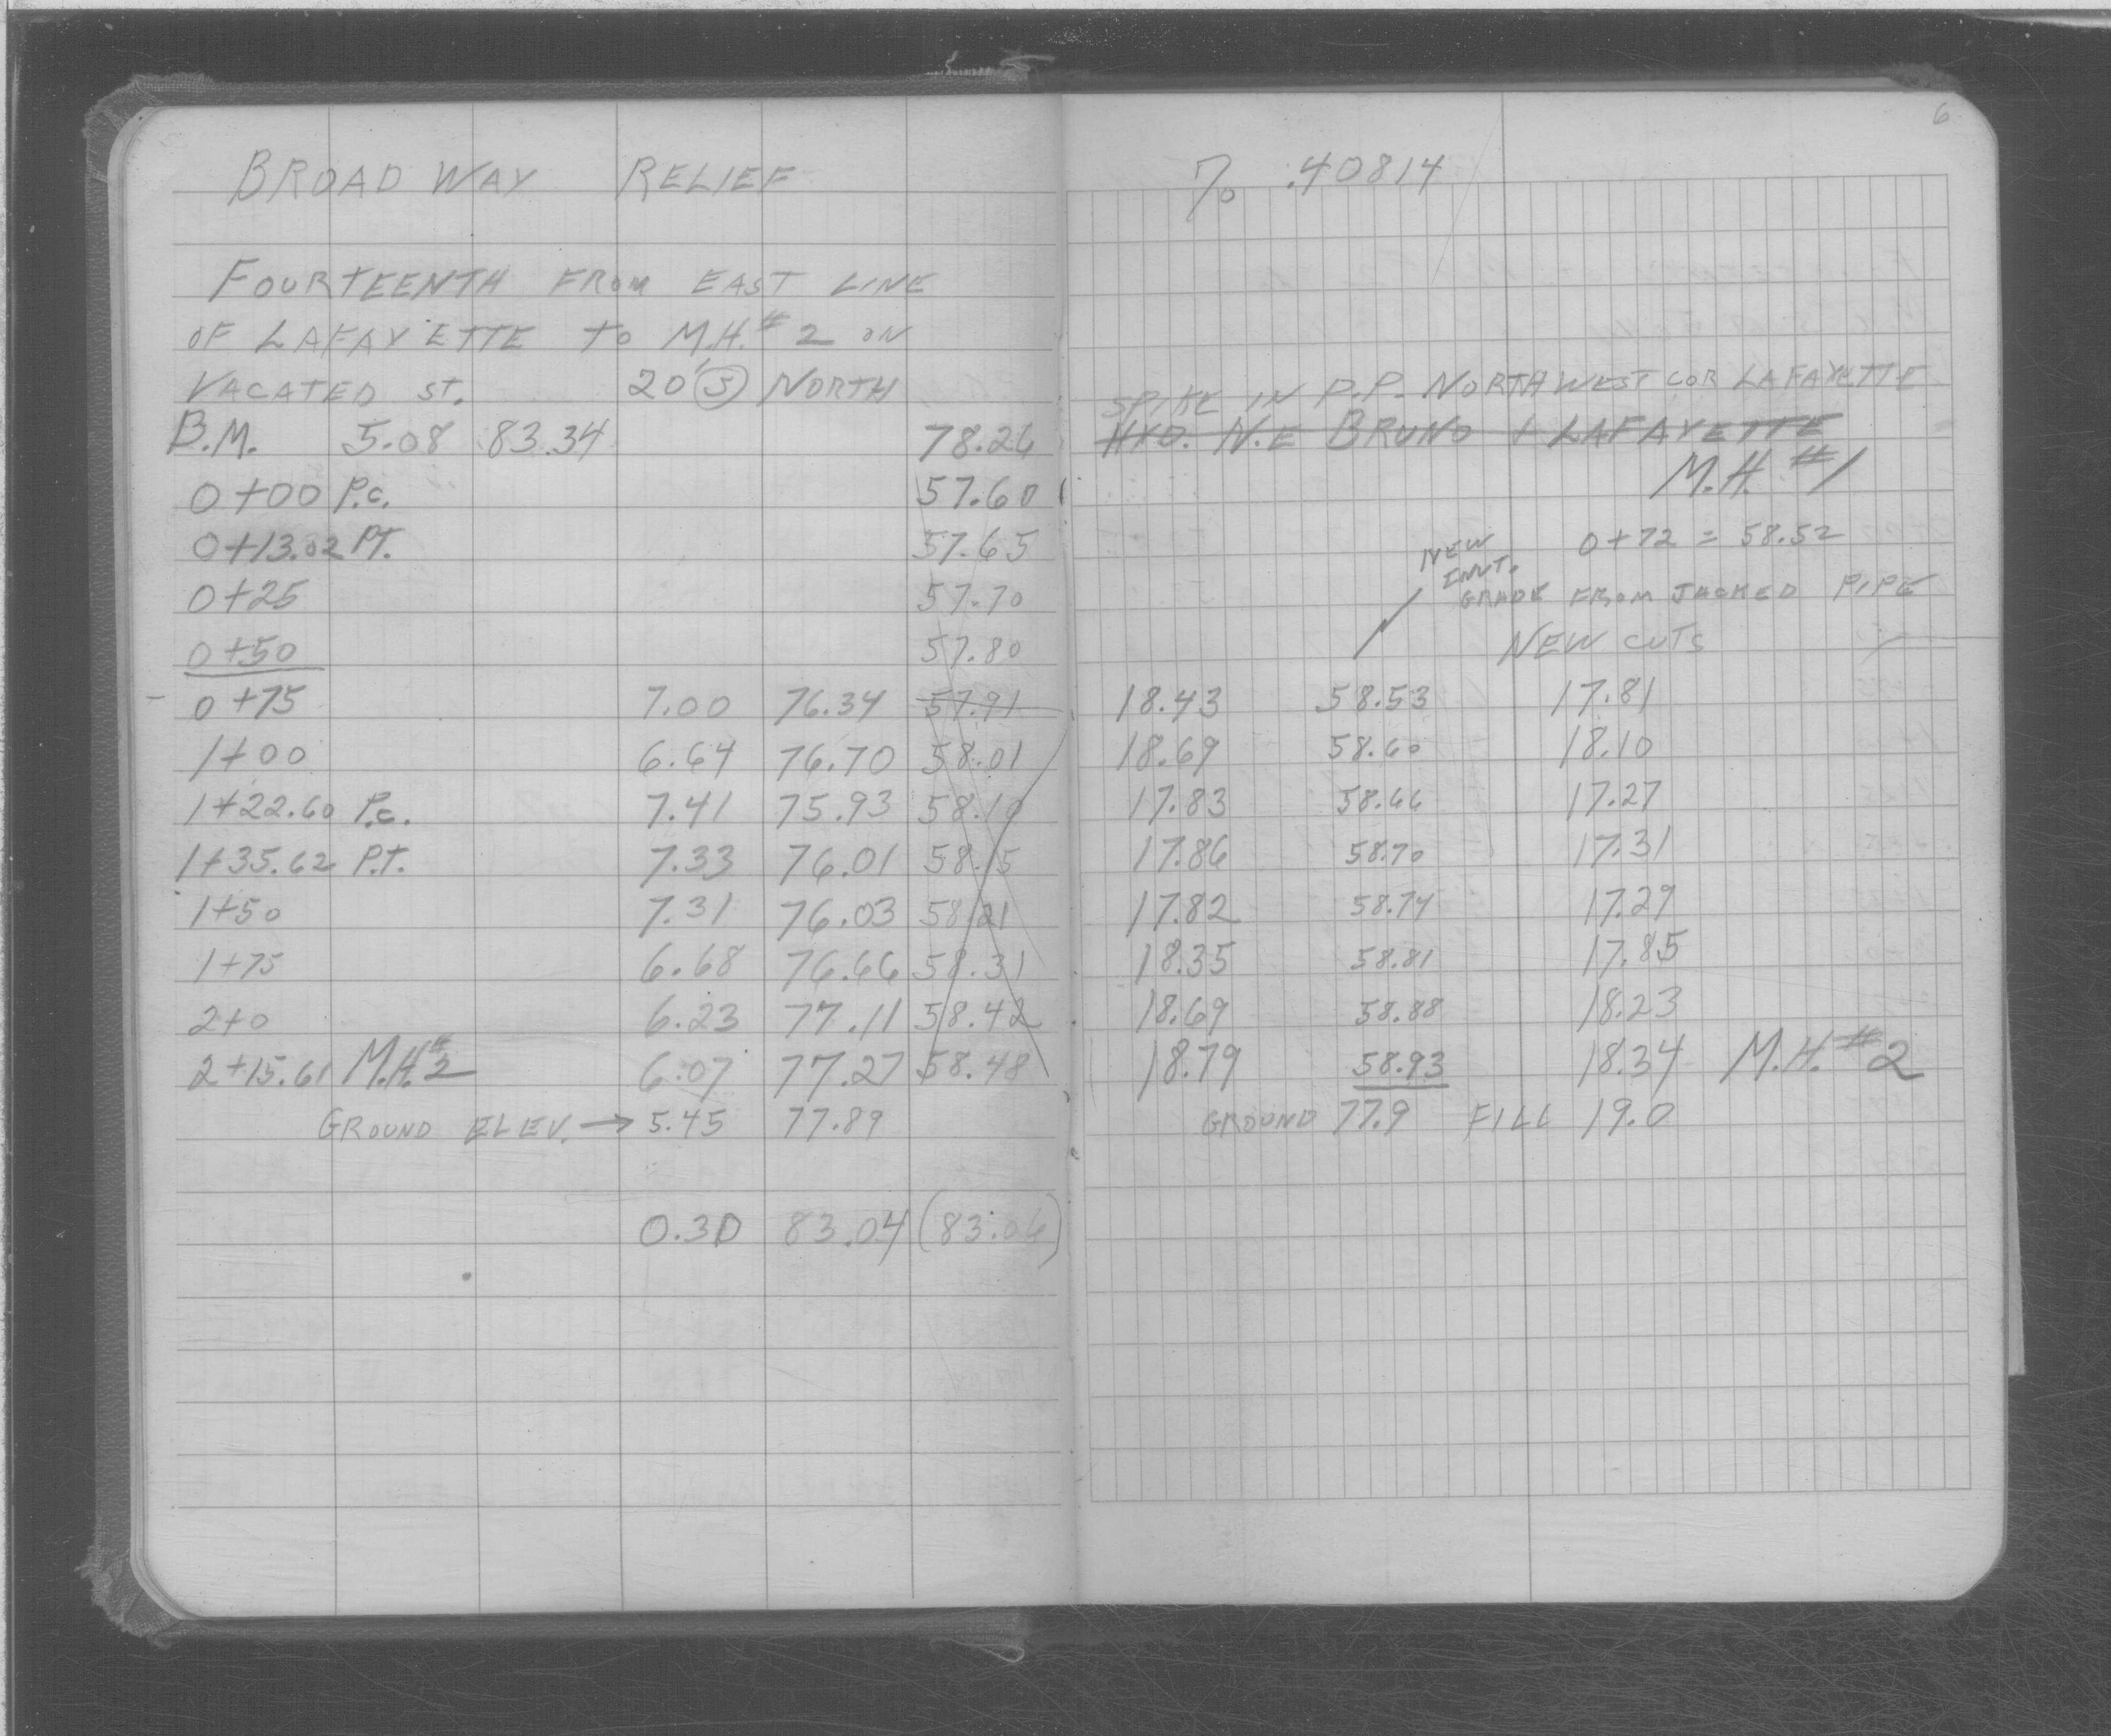 BROADWAY RELIEF
FOURTEENTH FROM EAST LINE
OF LAFAYETTE TO M.H.#2 ON
VACATED ST. 20' S NORTH
B.M. 5.08 83.34 78.26
0+00 P.C. 57.60
0+13.02 P.T. 57.65
0+25 57.70
0+50 57.80
0+75 7.00 76.34 57.91
1+00 6.64 76.70 58.01
1+22.60 P.C. 7.41 75.93 58.10
1+35.62 P.T. 7.33 76.01 58.15
1+50 7.31 76.03 58.21
1+75 6.68 76.66 58.31
2+0 6.23 77.11 58.42
2+15.61 M.H.#2 6.07 77.27 58.48
GROUND ELEV. → 5.45 77.89
0.30 83.04 (83.06)
6
% .40814
SPIKE IN P.P. NORTHWEST COR LAFAYETTE
HYD. N.E BRUNO + LAFAYETTE
M.H. #1
0+72 = 58.52
NEW
INVT.
GRADE FROM JACKED PIPE
NEW CUTS
18.43 58.53 17.81
18.69 58.60 18.10
17.83 58.66 17.27
17.86 58.70 17.31
17.82 58.74 17.29
18.35 58.81 17.85
18.69 58.88 18.23
18.79 58.93 18.34 M.H.#2
GROUND 77.9 FILL 19.0